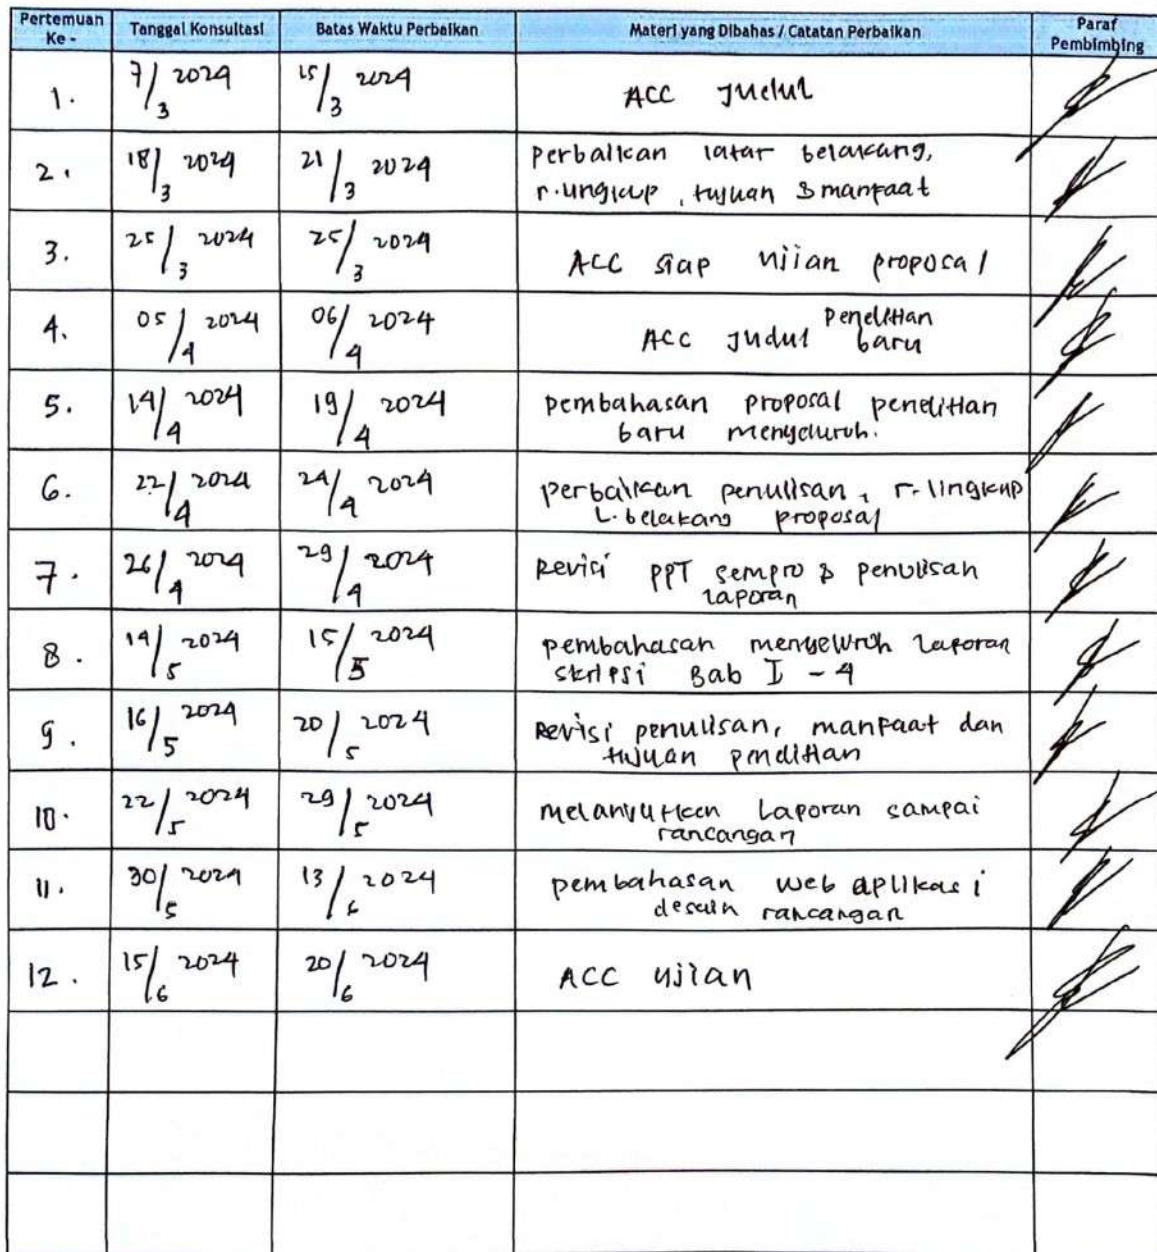 Pertemuan Ke - Tanggal Konsultasi Batas Waktu Perbaikan Materi yang Dibahas / Catatan Perbaikan Paraf Pembimbing
1. 7/3 2024 15/3 2024 ACC Judul
2. 18/3 2024 21/3 2024 perbaikan latar belakang,
r.lingkup, tujuan & manfaat
3. 25/3 2024 25/3 2024 ACC siap ujian proposal
4. 05/4 2024 06/4 2024 ACC Judul Penelitian
baru
5. 14/4 2024 19/4 2024 pembahasan proposal penelitian
baru menyeluruh.
6. 22/4 2024 24/4 2024 perbaikan penulisan, r.lingkup
L.belakang proposal
7. 26/4 2024 29/4 2024 Revisi PPT sempro & penulisan
laporan
8. 14/5 2024 15/5 2024 pembahasan menyeluruh laporan
skripsi Bab I - 4
9. 16/5 2024 20/5 2024 Revisi penulisan, manfaat dan
tujuan penelitian
10. 22/5 2024 29/5 2024 melanjutkan Laporan sampai
rancangan
11. 30/5 2024 13/6 2024 pembahasan web aplikasi
desain rancangan
12. 15/6 2024 20/6 2024 ACC ujian